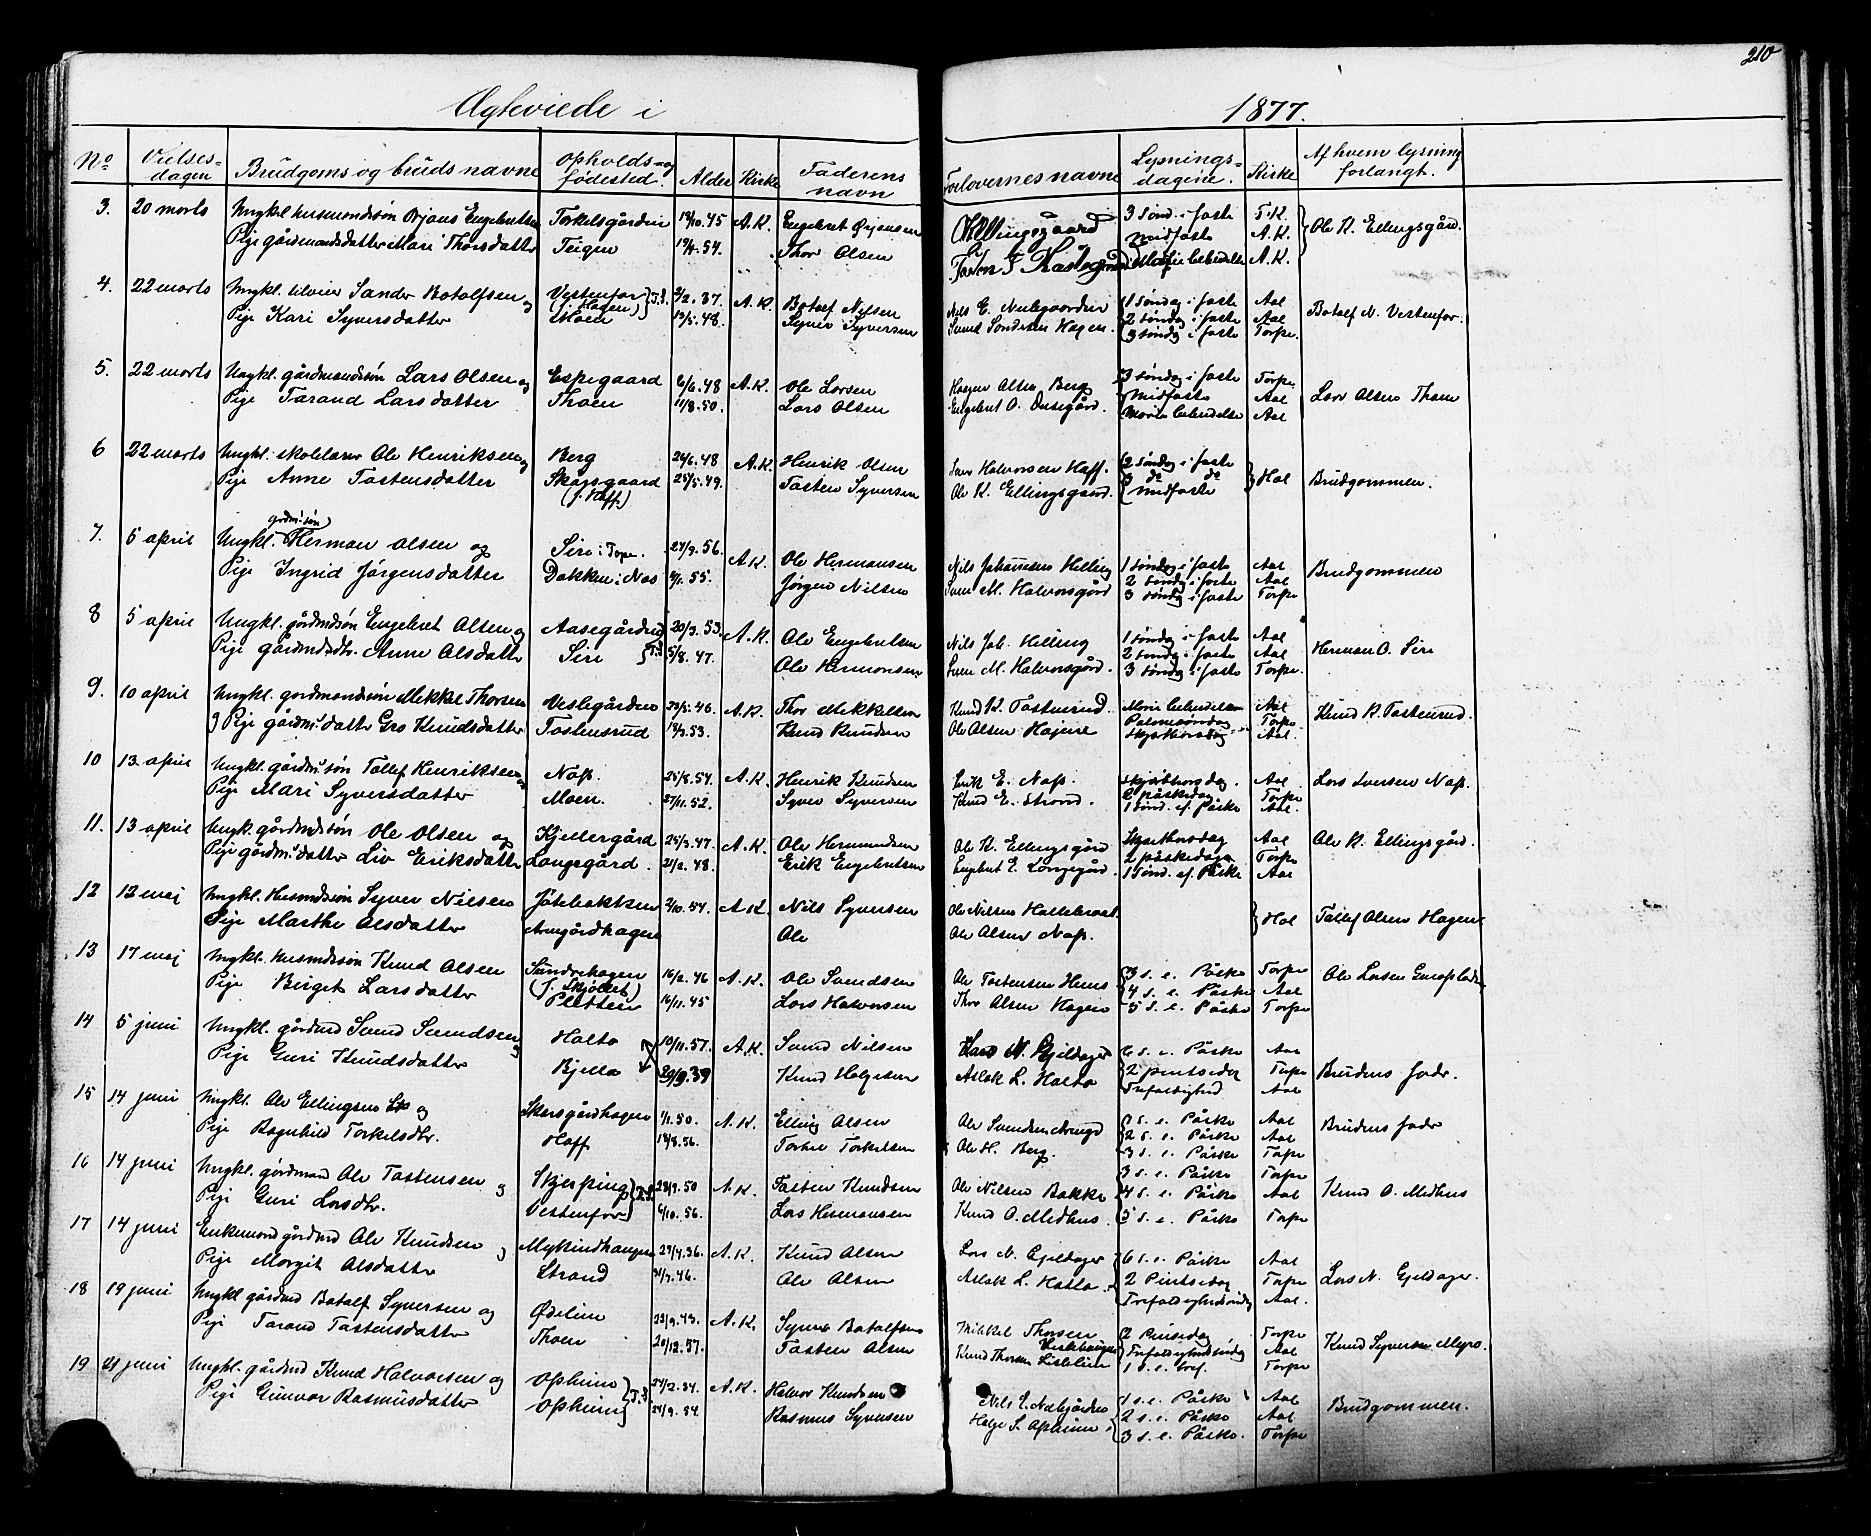 210
Ægteviede i 1877.
No Vielses-dagen Brudgoms og bruds navne Opholds- og fødested. Alder Kirke Faderens navn Forlovernes navne Lysnings-dagene. Kirke Af hvem lysning forlangt.
3. 20 marts Ungkl. husmandssøn Ørjans Engebretsen Torkelsgården 10.45 A.K. Engebret Ørjensen Ellingsgaard 3 sønd. i faste T.K. Ole K. Ellingsgård.
Pige gårdmandsdatter Mari Thorsdatter Teigen 54. Thor Olsen midfaste A.K.
Mariæ bebudelse A.K.
4. 22 marts Ungkl. Sander Botolfsen og Vestenfor T.S. 2/2.37. A.K. Botolf Nilsen Nils E. 1 søndag i faste Aal Botolf N. Vestenfor.
Pige Kari Syversdatter Moen 12/5.48. Syver Syversen Svend Sanderssen Hagen. 2 søndag i faste Aal
3 søndag i faste Torpe.
5. 22 marts Ungkl. gårdmandssøn Lars Olsen og Espegaard 6/6.48 A.K. Ole Larsen Haagen Olsen Berg 3 søndag i faste Torpe Lars Olsen Thoen
Pige Tarand Larsdatter Thoen 11/8.50. Lars Olsen Engebret O. midfaste Aal
Mariæ bebudelse Aal
6 22 marts Ungkl. skolelærer Ole Henriksen og Berg 24/6.48 A.K. Henrik Olsen Halvorsen Haff. 2 søndag i faste Hol Brudgommen.
Pige Anne Tostensdatter Skogsgaard 25/5.49. Tosten Syversen Ole K. Ellingsgaard. 3 do do
(j. Haff) midfaste
7. 5 april Ungkl. gårdm.søn Herman Olsen og Siri i Torpe. 27/9.56. A.K. Ole Hermansen Nils Johannesen Helling 1 søndag i faste Aal Brudgommen
Pige Ingrid Jørgensdatter Dokken i Næs 9/1.55. Jørgen Nilsen Svein M. Halvorsgård 2 søndag i faste Aal
3 søndag i faste Torpe
8 5 april Ungkl. gårdmdsøn Engebret Olsen og Aasegården 20/3.53. A.K. Ole Engebretsen Nils Joh. Helling 1 søndag i faste Aal Herman O. Siri
Pige gårdmdsdtr. Anne Olsdatter Siri T.S. 5/8.47. Ole Hermansen Svein M. Halvorsgård. 2 søndag i faste Aal
3 søndag i faste Torpe.
9. 10 april Ungkl. gårdmandssøn Mikkel Thorsen Veslegården 23/5.46 A.K. Thor Mikkelsen Knud K. Tostensrud. Mariæ bebudelse Aal Knud K. Tostensrud.
og Pige gårdm.datter Gro Knudsdatter Tostensrud 12/3.53. Knud Knudsen Ole Olsen Palmesøndag Torpe
Skjærthorsdag Aal.
10 13 april Ungkl. gårdm.søn Tollef Henriksen og Næss. 25/8.54. A.K. Henrik Knudsen Erik E. Næss. Skjærthorsdag. Aal Lars Næss.
Pige Mari Syversdatter Moen. 27/11.52. Syver Syversen Knud E. Strand. 2 påskedag Torpe
1 sønd. ef. Påske Aal.
11. 13 april Ungk. gårdmdssøn Ole Olsen og Kjellergård 25/3.47. A.K. Ole Hermundsen Ole K. Ellingsgård Skjærthorsdag Aal Ole K. Ellingsgård.
Pige gårdm.datter Liv Eriksdatter Langegård. 21/2.48. Erik Engebretsen Engebret E. Langegård. 2 påskedag Torpe
1 sønd. ef. Påske Aal
12 12 maj Ungkl. Husmdssøn Syver Nilsen Jøtebakken 2/10.54. A.K. Nils Syversen Ole Nilsen Hol Tollef Olsen Hagen
Pige Marthe Olsdatter Arnegårdhagen Ole Ole Olsen Næss.
13 17 maj Ungkl. husmdssøn Knud Olsen Sundrehagen 16/2.46 A.K. Ole Svendsen Ole Tostensen 3 s. e. Påske Torpe Ole Larsen
Pige Birget Larsdatter Pletten 16/11.45 Lars Halvorsen Thor Olsen Hagen 4 s. e. Påske Aal
5 s. e. Påske Torpe
14 5 juni Ungkl. gårdmd Svend Svendsen og Holto 10/11.57. A.K. Svend Nilsen Lars N. Gjeldager 6 s. e. Påske Aal Brudens fader.
Pige Guri Knudsdatter Bjella 20/9.39 Knud Helgesen Aslak L. Holto 2 pintsedag Torpe
Trefoldighed Aal
15 14 juni Ungkl. Ole Ellingsen og Skarsgårdhagen 1/1.50. A.K. Elling Olsen Ole Svendsen 1 s. e. Påske Aal Brudens fader
Pige Ragnhild Torkelsdtr. Haff 18/8.56. Torkel Torkelsen Ole H. Berg. 2 s. e. Påske Aal
3 s. e. Påske Torpe
16 14 juni Ungkl. gårdmand Ole Tostensen og Skjerping T.S. 23/9.50 A.K. Tosten Knudsen Ole Nilsen Bakke 3 s. e. Påske Torpe Knud O. Medhus
Pige Guri Larsdtr. Vestenfor 6/10.56. Lars Hermansen Knud O. Medhus. 4 s. e. Påske Aal
5 s. e. Påske Torpe
17 14 juni Enkemand gårdmd Ole Knudsen og 29/4.36. A.K. Knud Olsen Lars N. Gjeldager 6 s. e. Påske Aal Lars N. Gjeldager.
Pige Margit Olsdatter Strand 31/7.46. Ole Olsen Aslak L. Holto. 2 Pintsedag Torpe
Trefoldighedssøndag Aal.
18 19 juni Ungkl gårdmd Botolf Syversen og Ødelien 23/9.43. A.K. Syver Botolfsen Mikkel Thorsen 2 Pintsedag Torpe Knud Syversen Myro.
Pige Tarand Tostensdatter Thoen 20/12.57. Tosten Olsen Knud Thorsen Lislelien Trefoldighedssøndag Aal
1 s. e. tref. Torpe
19 21 juni Ungkl. gårdmd Knud Halvorsen og Opheim 27/2.34. A.K. Halvor Knudsen Nils E. 1 s. e. Påske Aal Brudgommen.
Pige Gunvor Rasmusdatter Opheim T.S. 24/9.54. Rasmus Syversen Helge S. Opheim 2 s. e. Påske Aal
3 s. e. Påske. Torpe